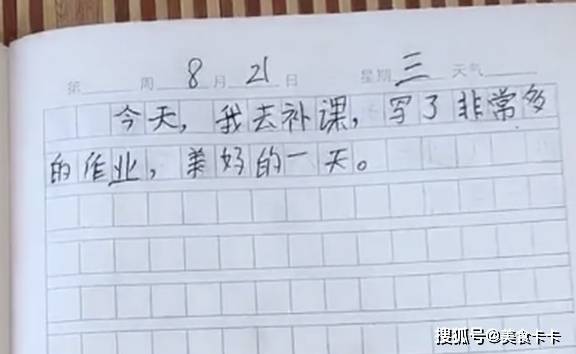 第 周 8月21日 星期三 天气
今天，我去补课，写了非常多
的作业，美好的一天。
搜狐号@美食卡卡